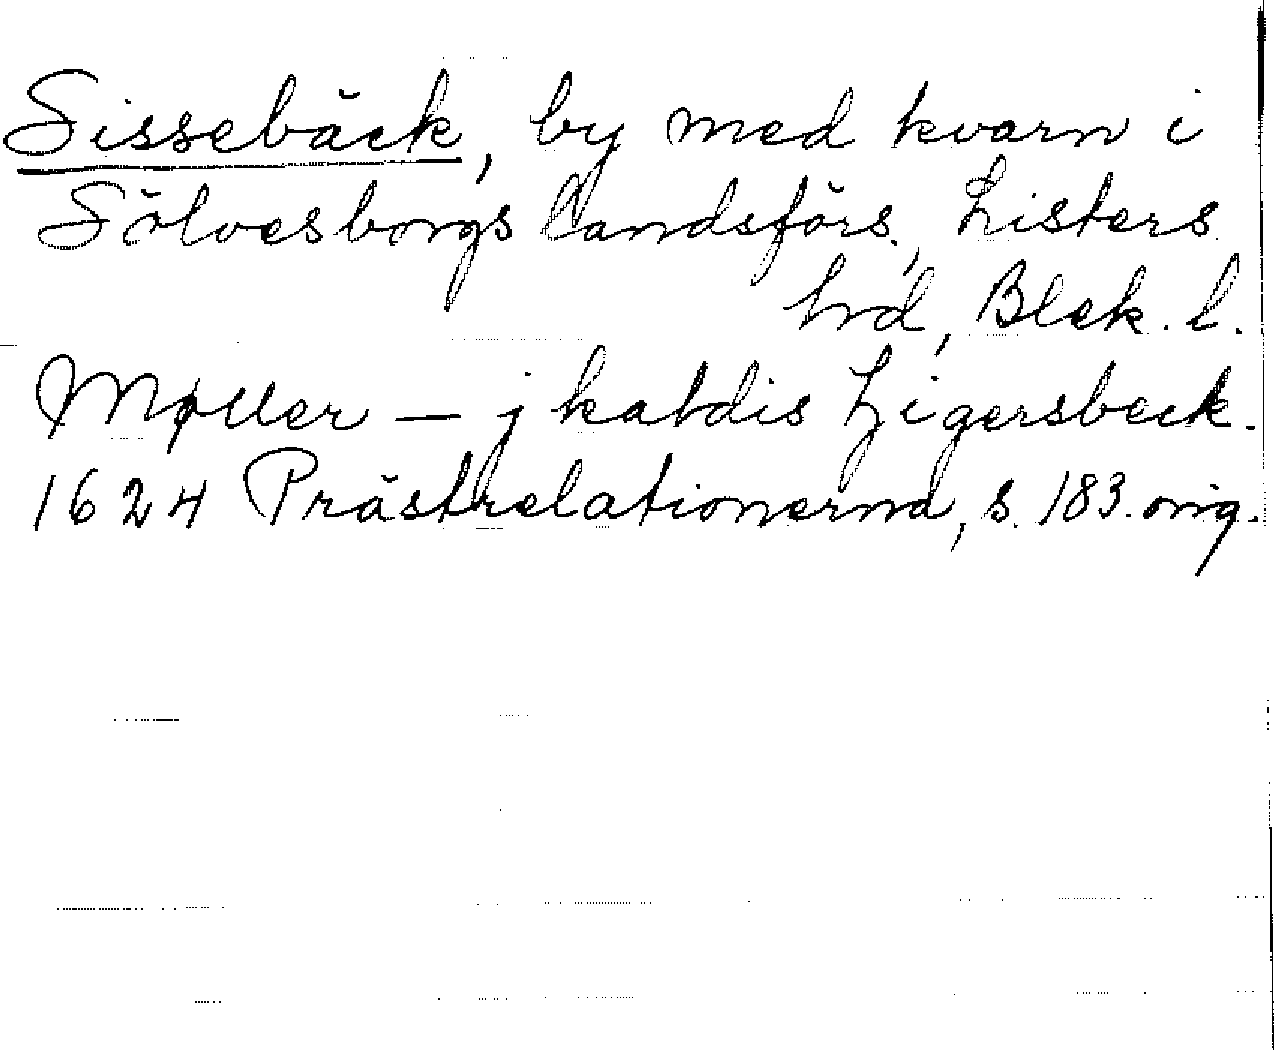 Sissebäck, by med kvarn i
Sölvesborgs landsförs., Listers
hrd, Blek. l.
Møller — j kaldis Ligersbeck.
1624 Prästrelationerna, s. 183. orig.